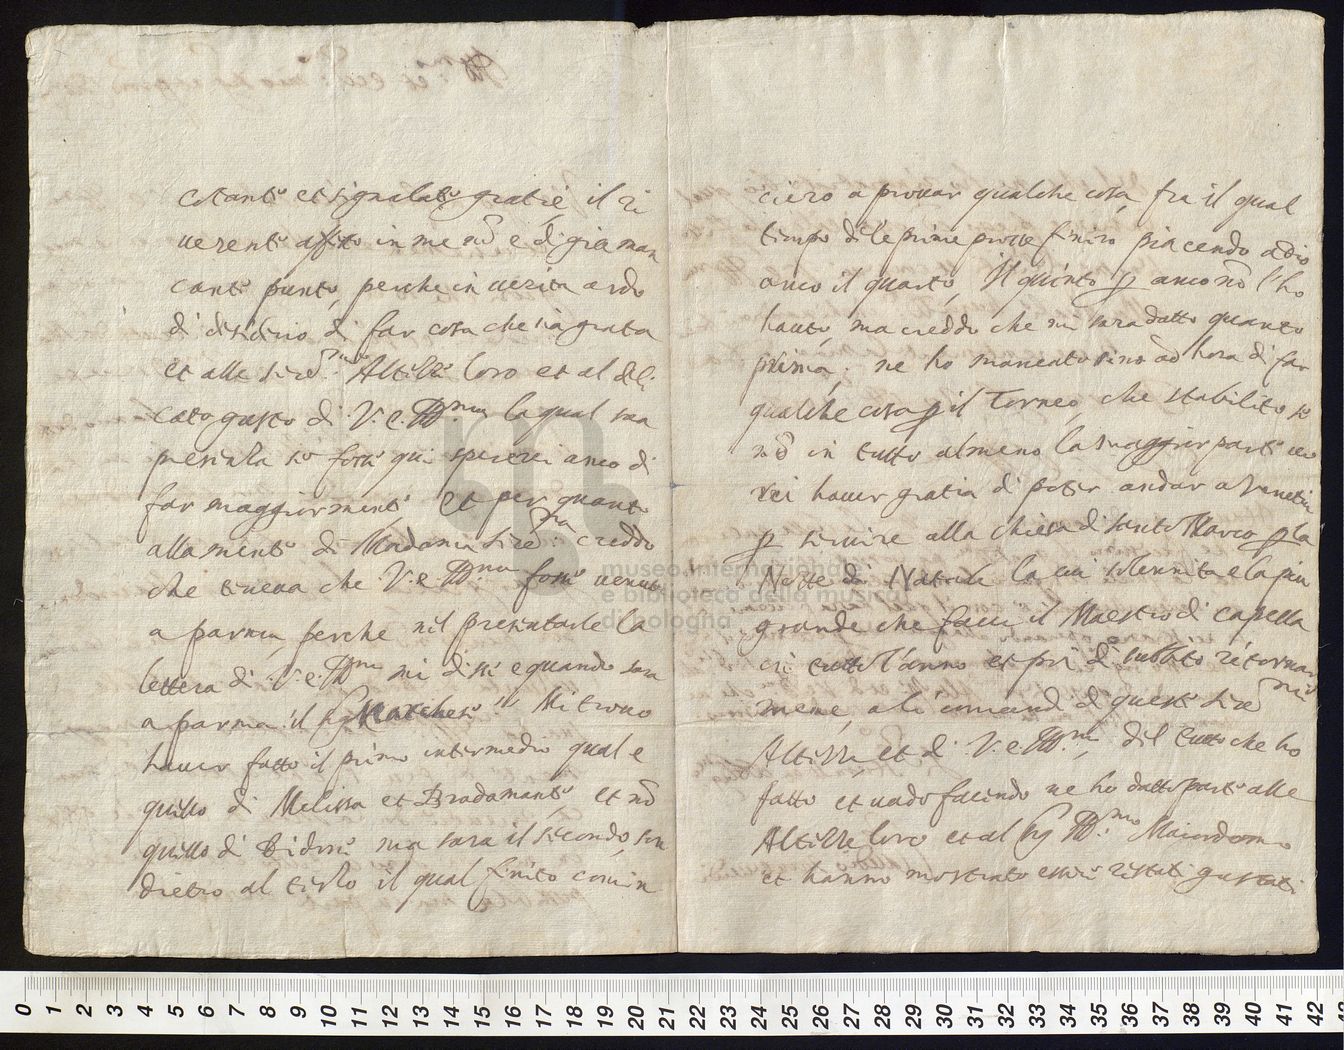 cotante et signalate gratie, il ri
verente affetto in me nō e di già man
cante punto, perche in verita ardo
di desiderio di far cosa che sia grata
et alle ser.me Altezze loro et al deli
cato gusto di V. e. Ill.ma la qual sua
presenza se fosse qui spererei anco di
far maggiormente, et per quanto
alla mente di Madama Ser.ma credo
che teneva che V. e Ill.ma fosse venuta
a parma, perche nel presentarle la
lettera di V. e. Ill.ma mi disse e quando sara
a parma il sig Marchese Mi trovo
haver fatto il primo intermedio qual e
quello di Melissa et Bradamante et nō
quello di Didone ma sara il secondo, son
dietro al terzo il qual finito comin
ciero a provar qualche cosa, fra il qual
tempo de le prime prove finiro piacendo a dio
anco il quarto, Il quinto p anco nō l'ho
hauto, ma creddo che mi sara datto quanto
prima; ne ho mancato sino ad hora di far
qualche cosa p il Torneo, che stabilito se
nō in tutto almeno la maggior parte vor
rei haver gratia di poter andar a Venetia
p servire alla chiesa di santo Marco p la
Notte di Natale la cui solennita e la piu
grande che facci il Maestro di capella
in tutto l'anno et poi di subbito ritornar
mene, a li comandi di queste sere.me
Altezze, et di V. e. Ill.ma, del tutto che ho
fatto et vado facendo ne ho datto parte alle
Altezze loro et al sig Ill.mo Maiordomo
et hanno mostrato esser restati gustati
museo internazionale
e biblioteca della musica
di bologna
0 1 2 3 4 5 6 7 8 9 10 11 12 13 14 15 16 17 18 19 20 21 22 23 24 25 26 27 28 29 30 31 32 33 34 35 36 37 38 39 40 41 42